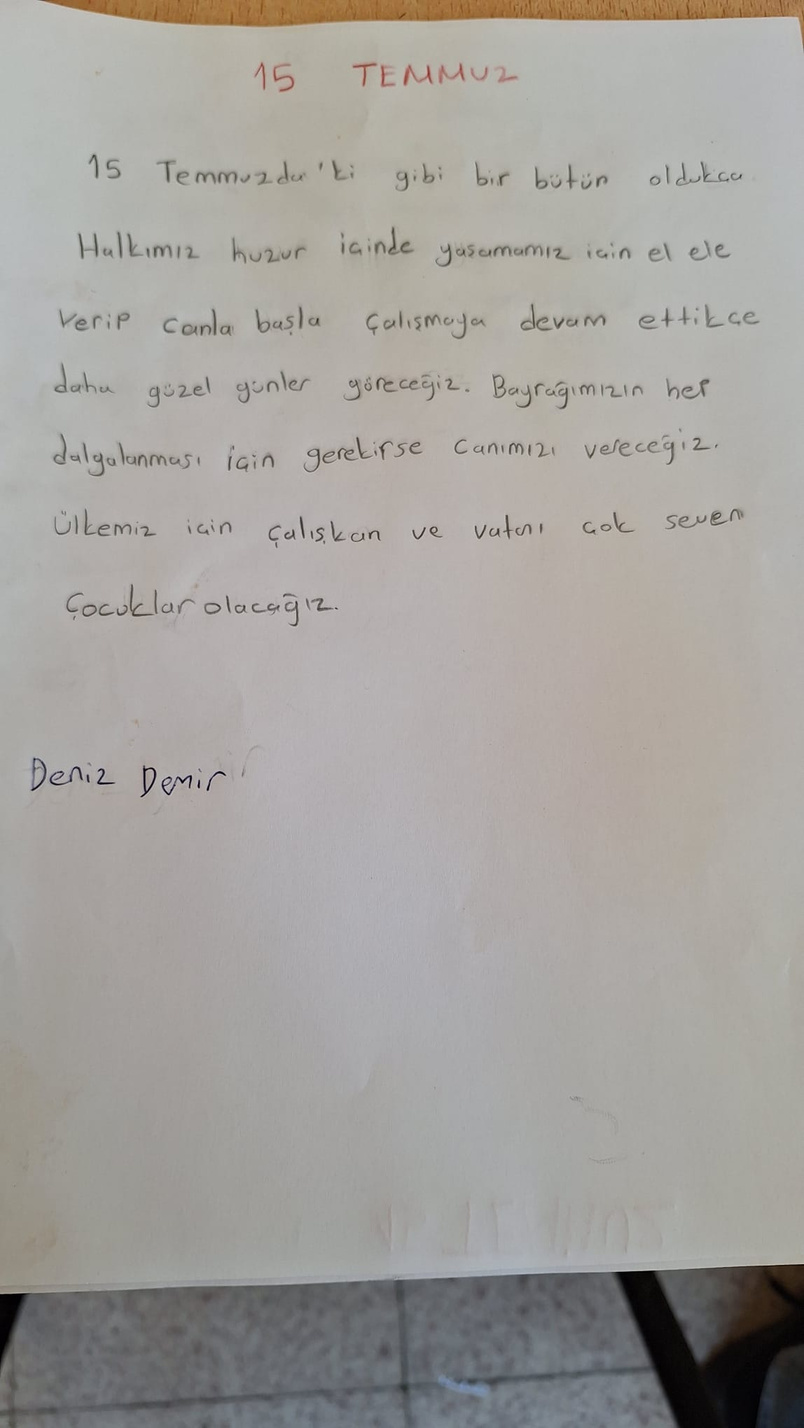 15 TEMMUZ
15 Temmuzda'ki gibi bir bütün oldukca
Halkımız huzur icinde yasamamız icin el ele
Verip canla başla çalışmaya devam ettikce
daha güzel günler göreceğiz. Bayrağımızın her
dalgalanması için gerekirse canımızı vereceğiz.
Ülkemiz icin çalışkan ve vatanı cok seven
Çocuklar olacağız.
Deniz Demir